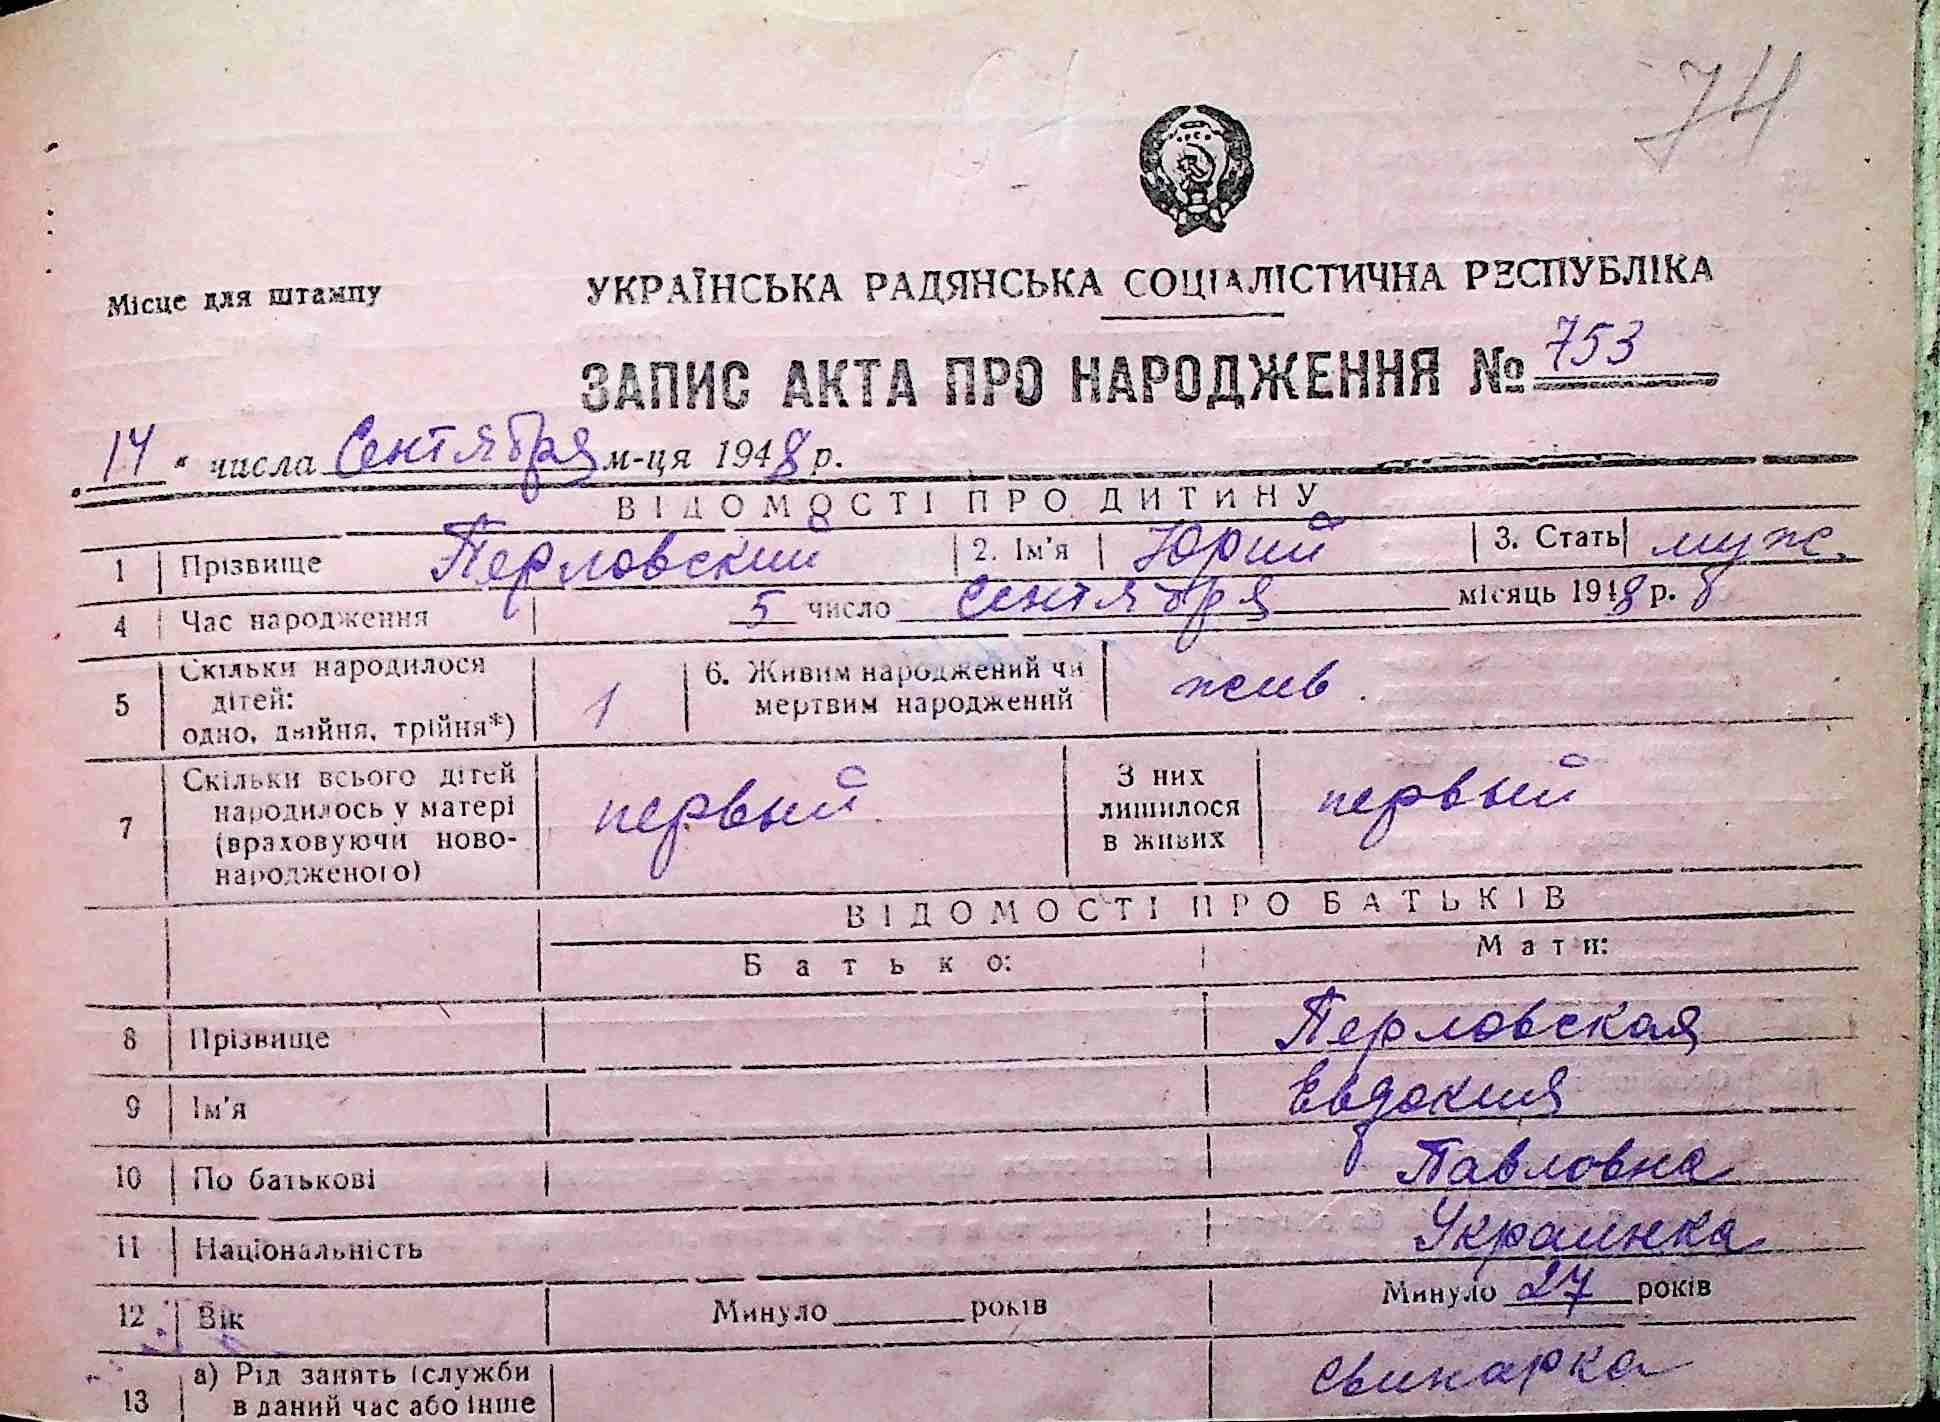 74
Місце для штампу
УКРАЇНСЬКА РАДЯНСЬКА СОЦІАЛІСТИЧНА РЕСПУБЛІКА
ЗАПИС АКТА ПРО НАРОДЖЕННЯ № 753
14 " числа Сентября м-ця 1948 р.
ВІДОМОСТІ ПРО ДИТИНУ
1 Прізвище Перловский 2. Ім'я Юрий 3. Стать муж.
4 Час народження 5 число Сентября місяць 1948 р.
5 Скільки народилося дітей: одно, двійня, трійня*) 1 6. Живим народжений чи мертвим народжений жив.
7 Скільки всього дітей народилось у матері (враховуючи ново-народженого) первый З них лишилося в живих первый
ВІДОМОСТІ ПРО БАТЬКІВ
Батько: Мати:
8 Прізвище Перловская
9 Ім'я Евдокия
10 По батькові Павловна
11 Національність Украинка
12 Вік Минуло років Минуло 27 років
13 а) Рід занять (служби в даний час або інше свинарка